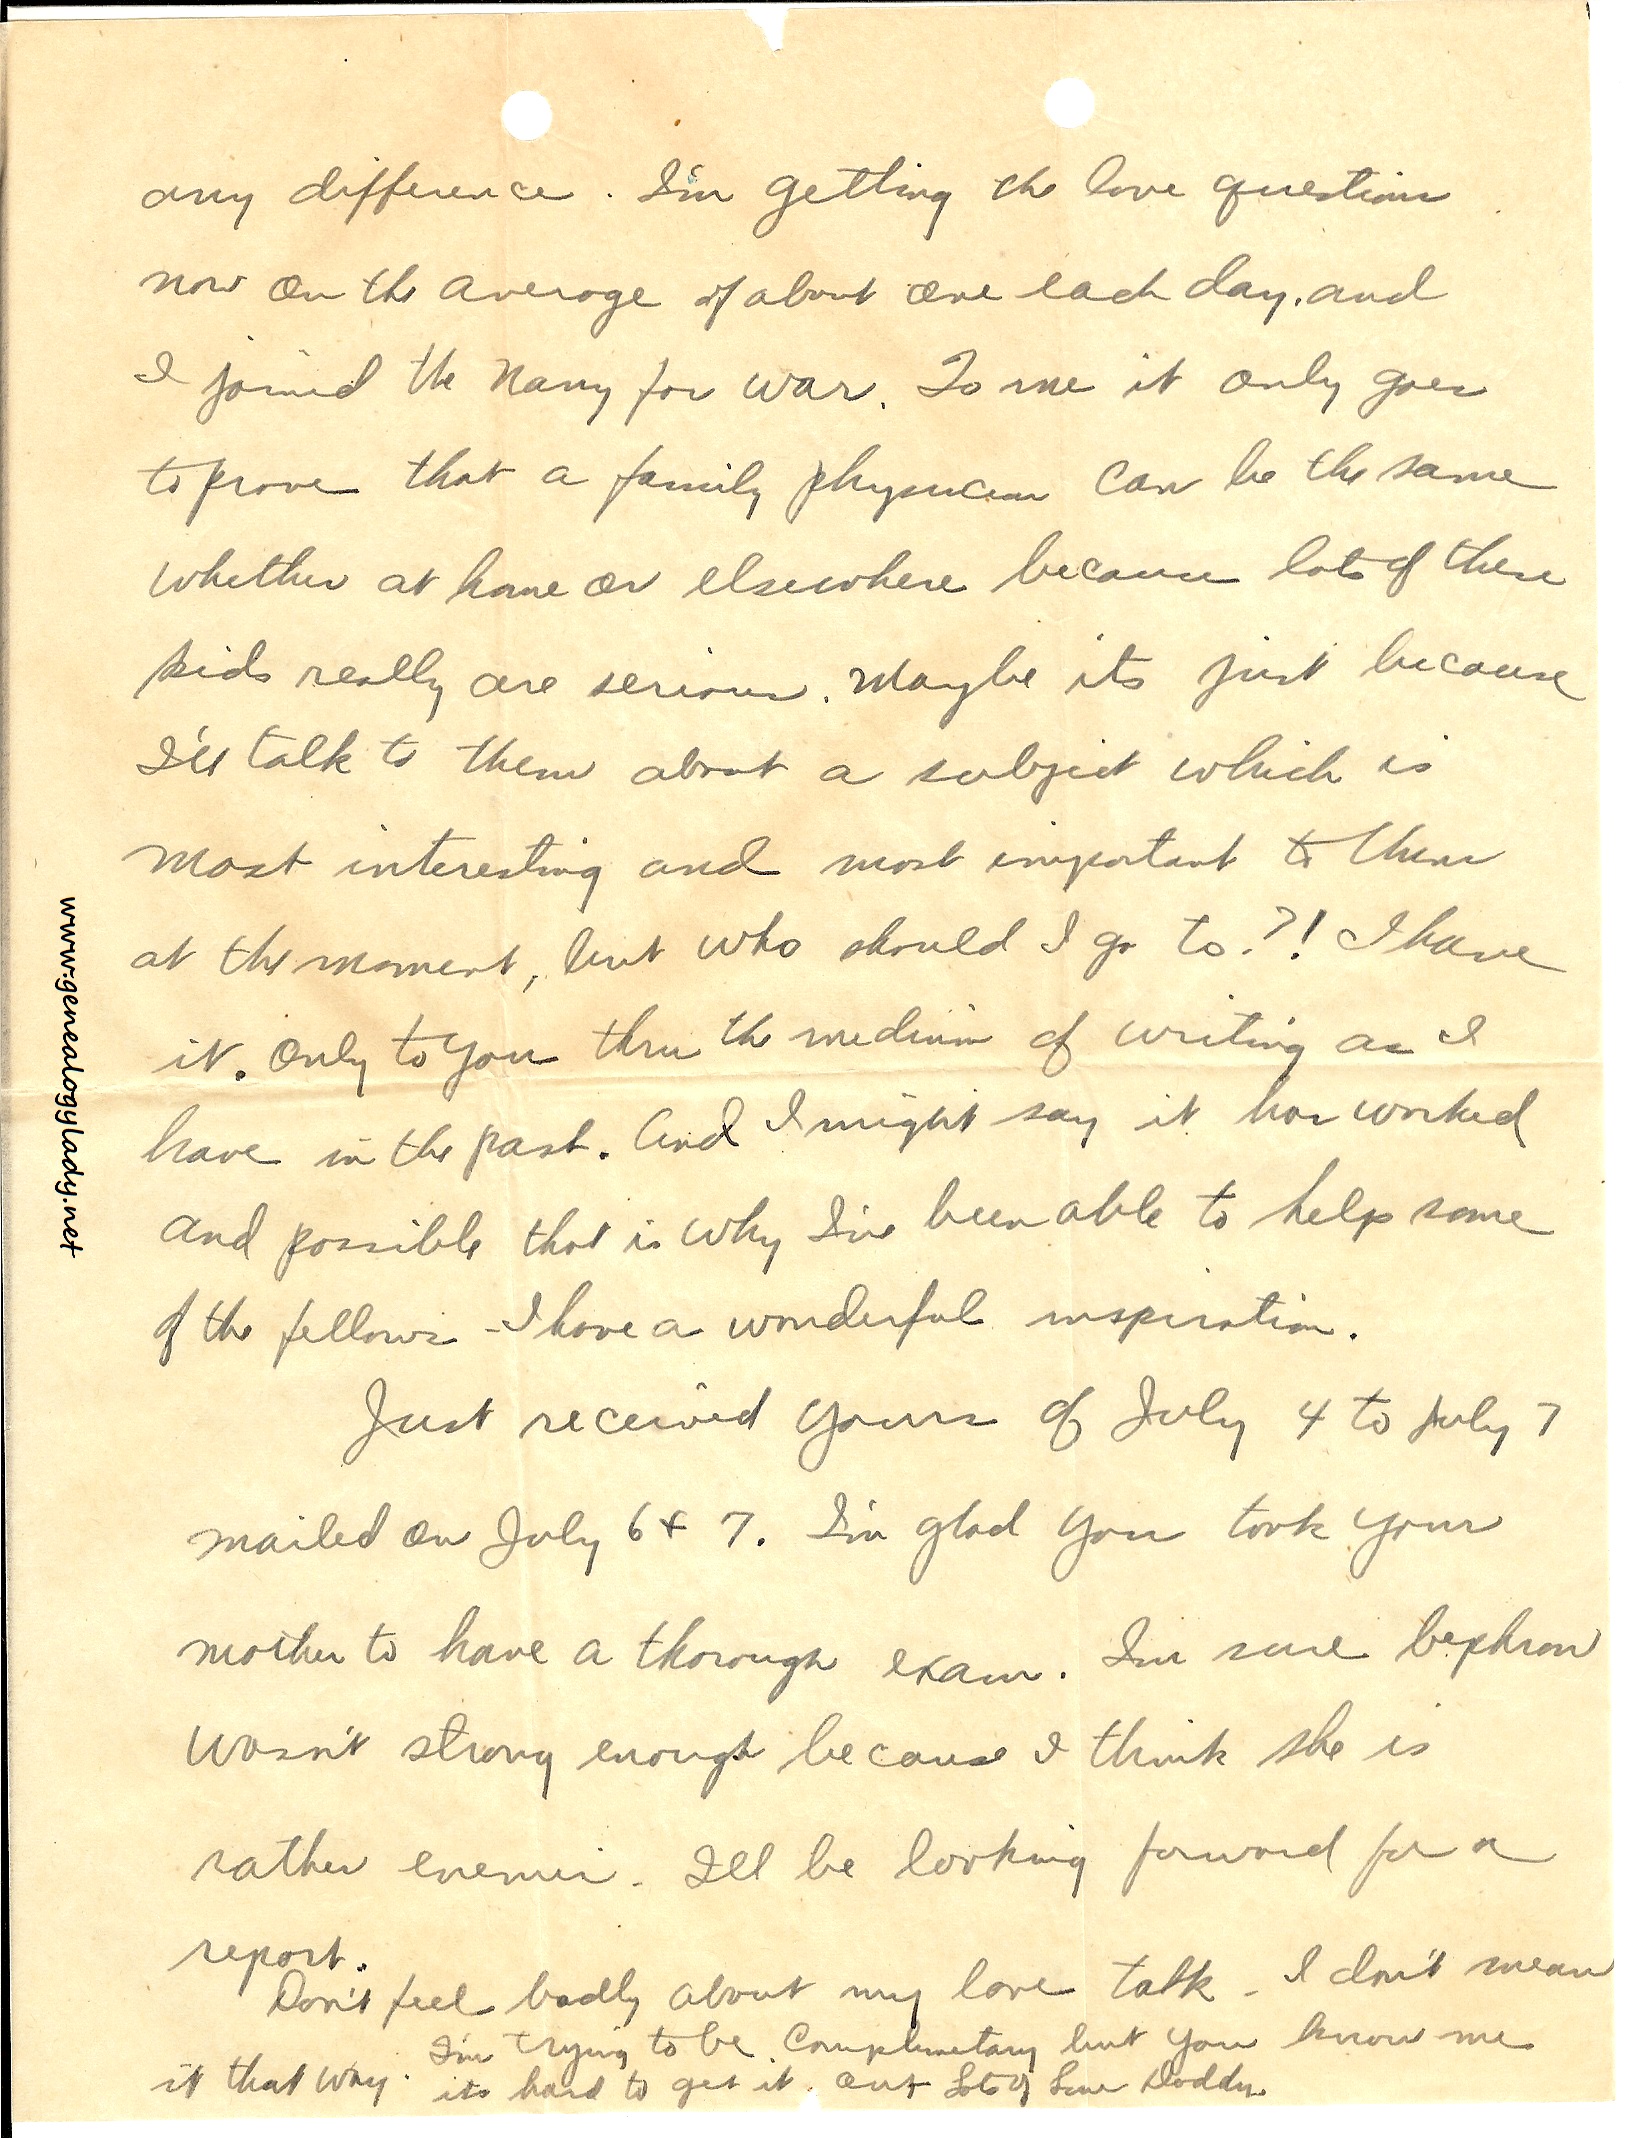 any difference. I'm getting the love question
now on the average of about one each day. and
I joined the Navy for war. To me it only goes
to prove that a family physician can be the same
whether at home or elsewhere because lots of these
kids really are serious. Maybe its just because
I'll talk to them about a subject which is
most interesting and most important to them
at the moment, but who should I go to.?! I have
it. Only to you thru the medium of writing as I
have in the past. And I might say it has worked
and possible that is why I've been able to help some
of the fellows - I have a wonderful inspiration.
Just received yours of July 4 to July 7
mailed on July 6 & 7. I'm glad you took your
mother to have a thorough exam. I'm sure bephron
wasn't strong enough because I think she is
rather enemic. I'll be looking forward for a
report.
Don't feel badly about my love talk - I don't mean
it that way. I'm trying to be complimetary but you know me
its hard to get it out Lots of Love Daddy.
www.genealogylady.net